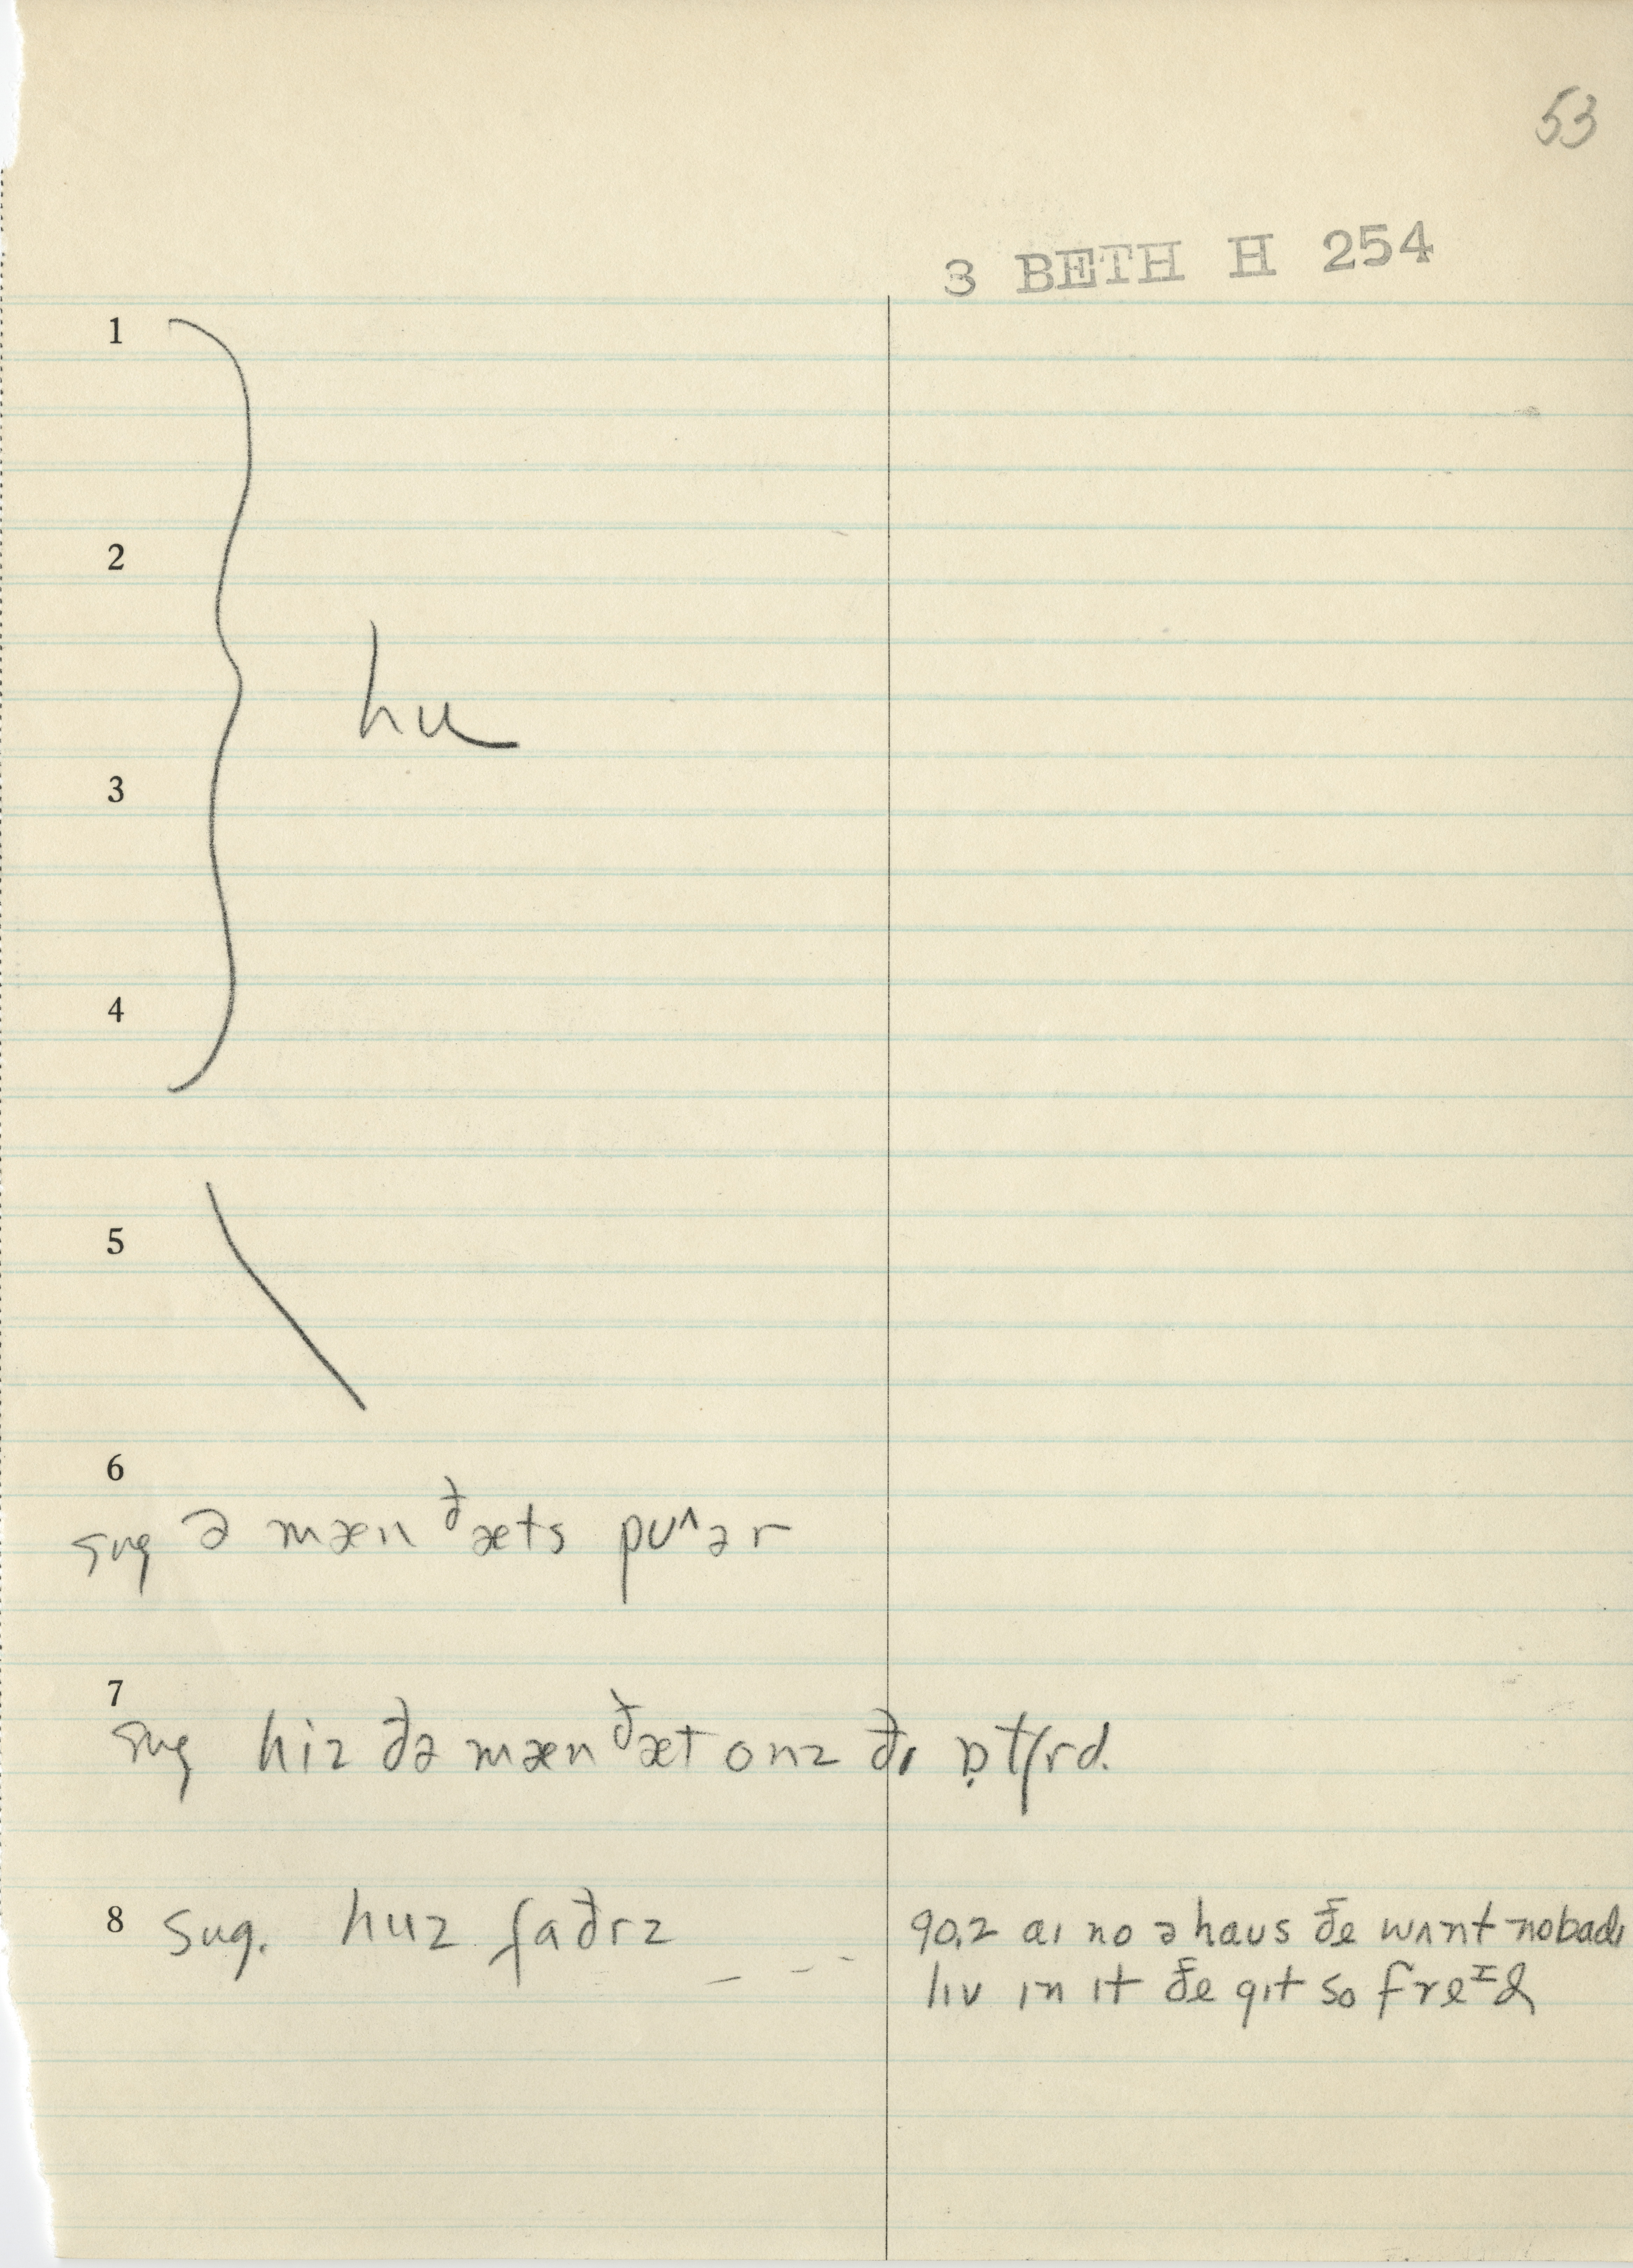 53
3 BETH H 254
1
2
hu
3
4
5
6
sug ə mæn ðæts puʌər
7
sug hiz ðə mæn ðæt onz ðɪ ɒtʃrd.
8 sug. huz faðrz _ _ _ _
90.2 aɪ no ə haus ðe wʌnt nobadɪ
lɪv ɪn ɪt ðe gɪt so freɪd